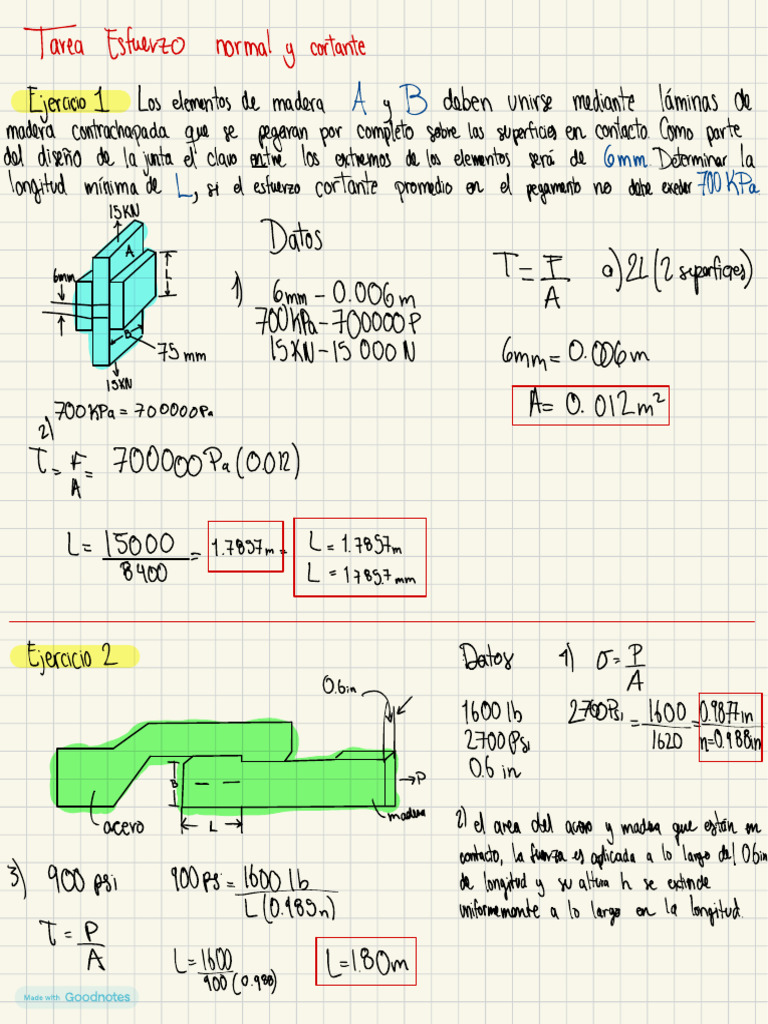 Tarea Esfuerzo normal y cortante
Ejercicio 1 Los elementos de madera A y B deben unirse mediante láminas de
madera contrachapada que se pegaran por completo sobre las superficies en contacto. Como parte
del diseño de la junta el claro entre los extremos de los elementos será de 6mm. Determinar la
longitud mínima de L, si el esfuerzo cortante promedio en el pegamento no debe exeder 700 KPa
15KN
A
6mm
L
B
75 mm
15KN
Datos
1) 6mm - 0.006m
700 KPa - 700000 P
15KN - 15 000 N
T = P/A a) 2L (2 superficies)
6mm = 0.006m
A = 0.012m²
700 KPa = 700000Pa
2)
T = F/A = 700000 Pa (0.012)
L = 15000/8400 = 1.7857m =
L = 1.7857m
L = 1785.7mm
Ejercicio 2
0.6in
B
L
P
acero
madera
Datos
1600 lb
2700 Psi
0.6 in
1) σ = P/A
2700Psi = 1600/1620 = 0.9877in
n=0.988in
2) el area del acero y madera que están en
contacto, la fuerza es aplicada a lo largo del 06in
de longitud y su altura h se extiende
uniformemente a lo largo en la longitud.
3) 900 psi
900 psi = 1600 lb/L(0.985n)
T = P/A
L = 1600/900(0.988)
L = 1.80m
Made with Goodnotes